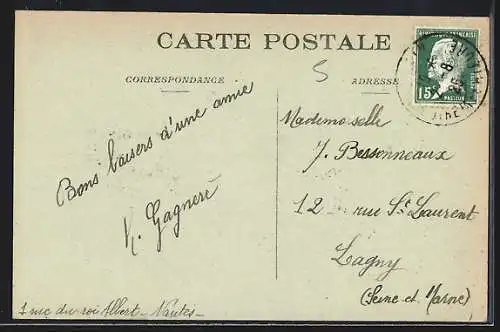 CARTE POSTALE
CORRESPONDANCE
ADRESSE
15c
PASTEUR
Bons baisers d'une amie
Mademoiselle
J. Bessonneaux
12 rue St Laurent
Lagny
(Seine et Marne)
1 rue du roi Albert - Nantes -